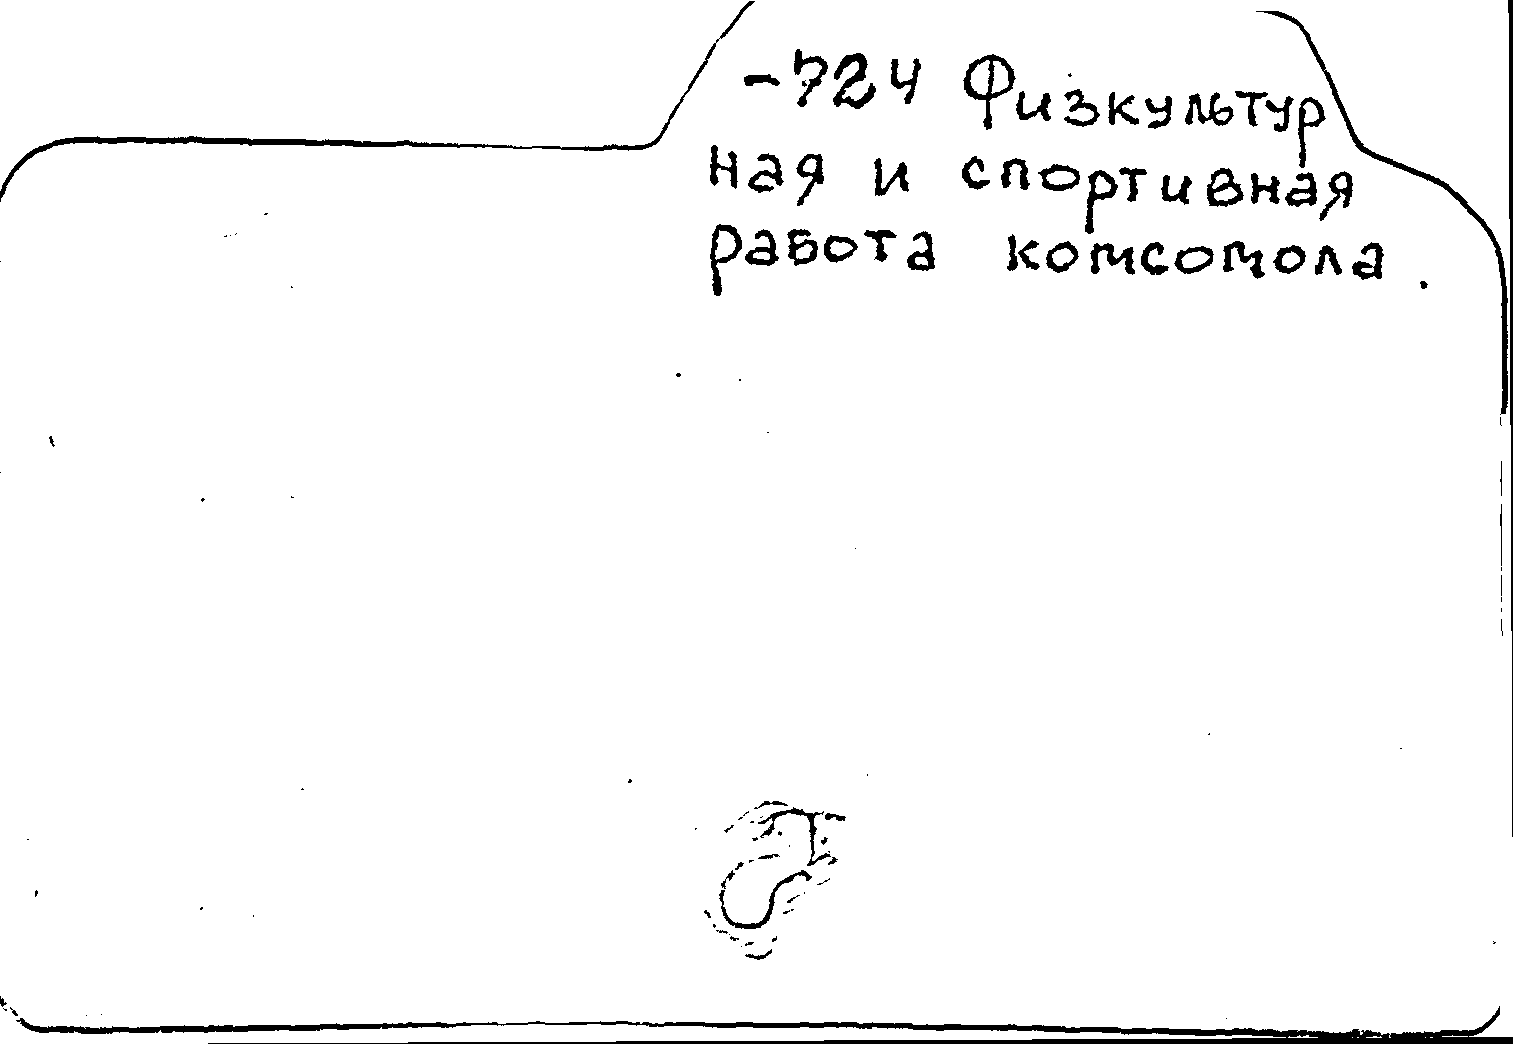 -724 Физкультур
ная и спортивная
работа комсомола.